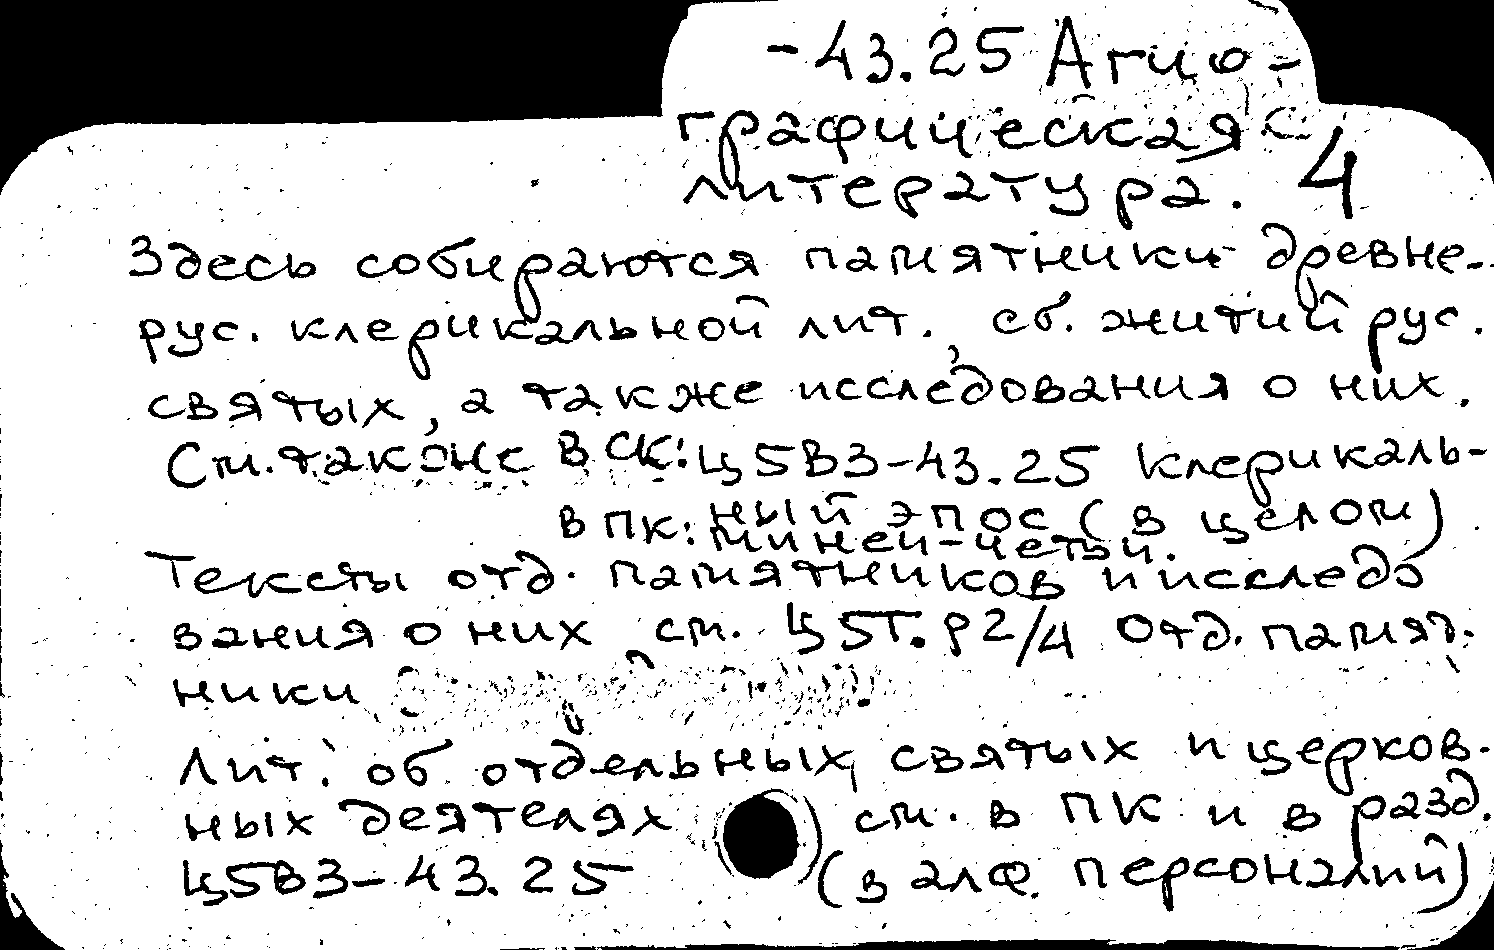 -43.25 Агио-
графическая
литература. 4
Здесь собираются памятники древне-
рус. клерикальной лит., сб. житий рус.
святых, а также исследования о них.
См. также в СК: Ц5В3-43.25 Клерикаль-
ный эпос (в целом)
в ПК: минеи-четьи.
Тексты отд. памятников и исследо
вания о них см. Ц5Т.р2/4 Отд. памят.
ники
Лит. об отдельных святых и церков-
ных деятелях см. в ПК и в разд.
Ц5В3-43.25 (в алф. персоналий)